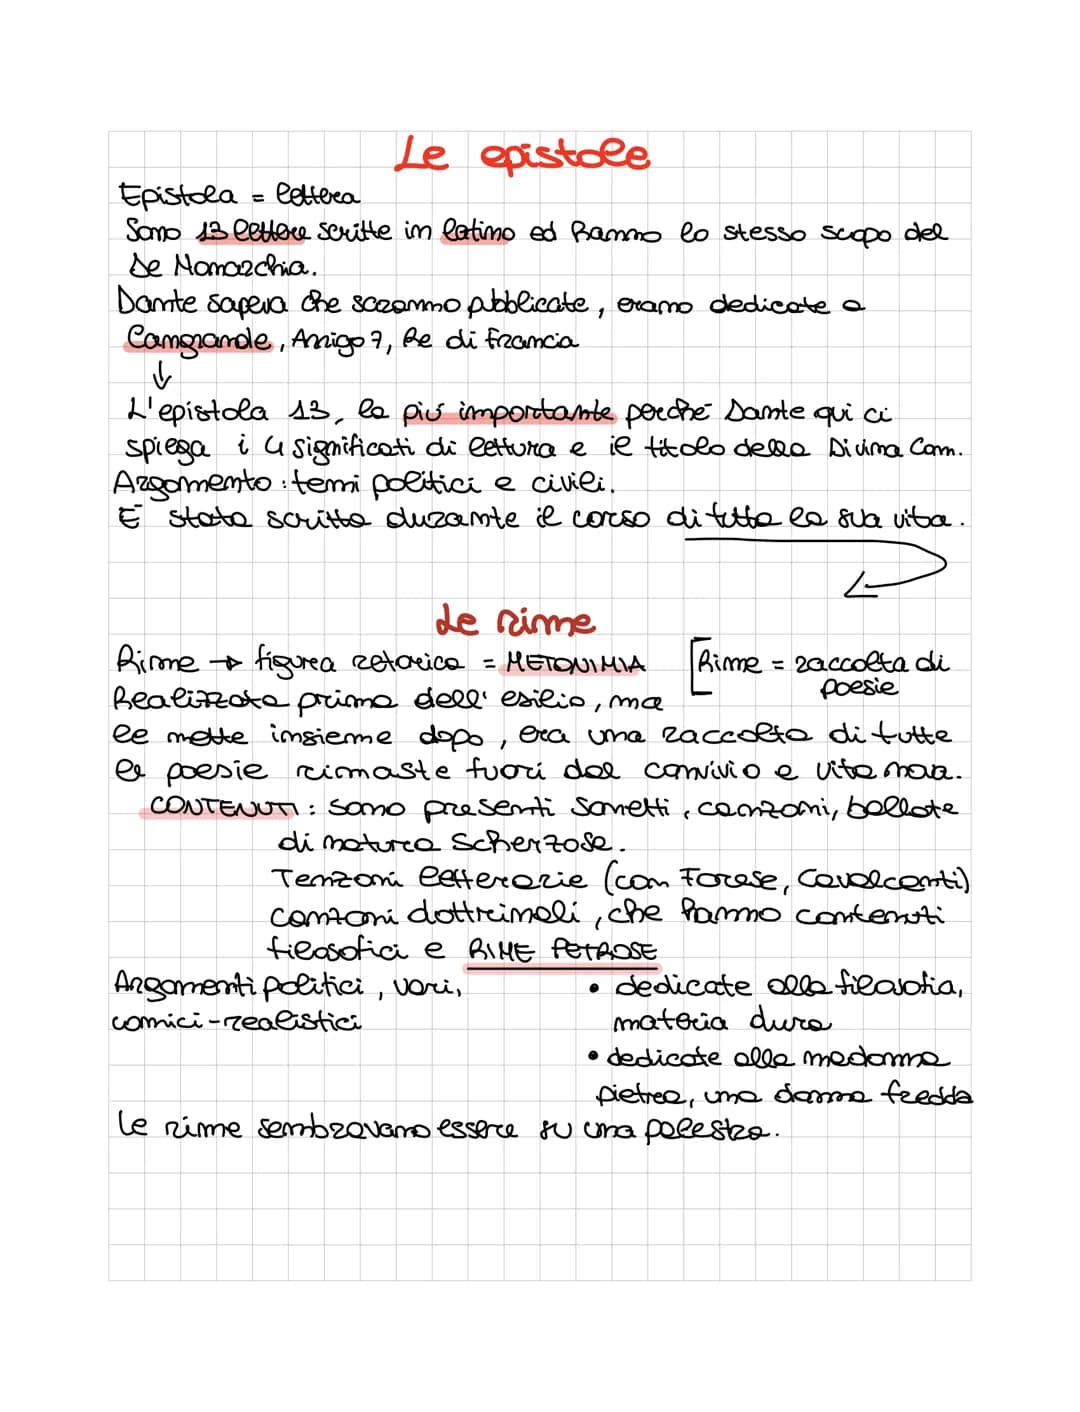 Le epistole
Epistola = lettera
Sono 13 lettere scritte in latino ed hanno lo stesso scopo del
De Monarchia.
Dante sapeva che saranno pubblicate, erano dedicate a
Cangrande, Arrigo 7, Re di Francia
↓
L'epistola 13, la più importante perché Dante qui ci
spiega i 4 significati di lettura e il titolo della Divina Com.
Argomento: temi politici e civili.
È stata scritta durante il corso di tutta la sua vita.
Le rime
Rime → figura retorica = METONIMIA [Rime = raccolta di
poesie
Realizzate prima dell' esilio, ma
le mette insieme dopo, era una raccolta di tutte
le poesie rimaste fuori dal convivio e vita nova.
CONTENUTI: sono presenti sonetti, canzoni, ballate
di natura scherzose.
Tenzoni letterarie (con Forese, Cavalcanti)
canzoni dottrinali, che hanno contenuti
filosofici e RIME PETROSE
Argomenti politici, vari,
comici-realistici
• dedicate alla filosofia,
materia dura
• dedicate alla madonna
pietra, una donna fredda
Le rime sembravano essere su una palestra.